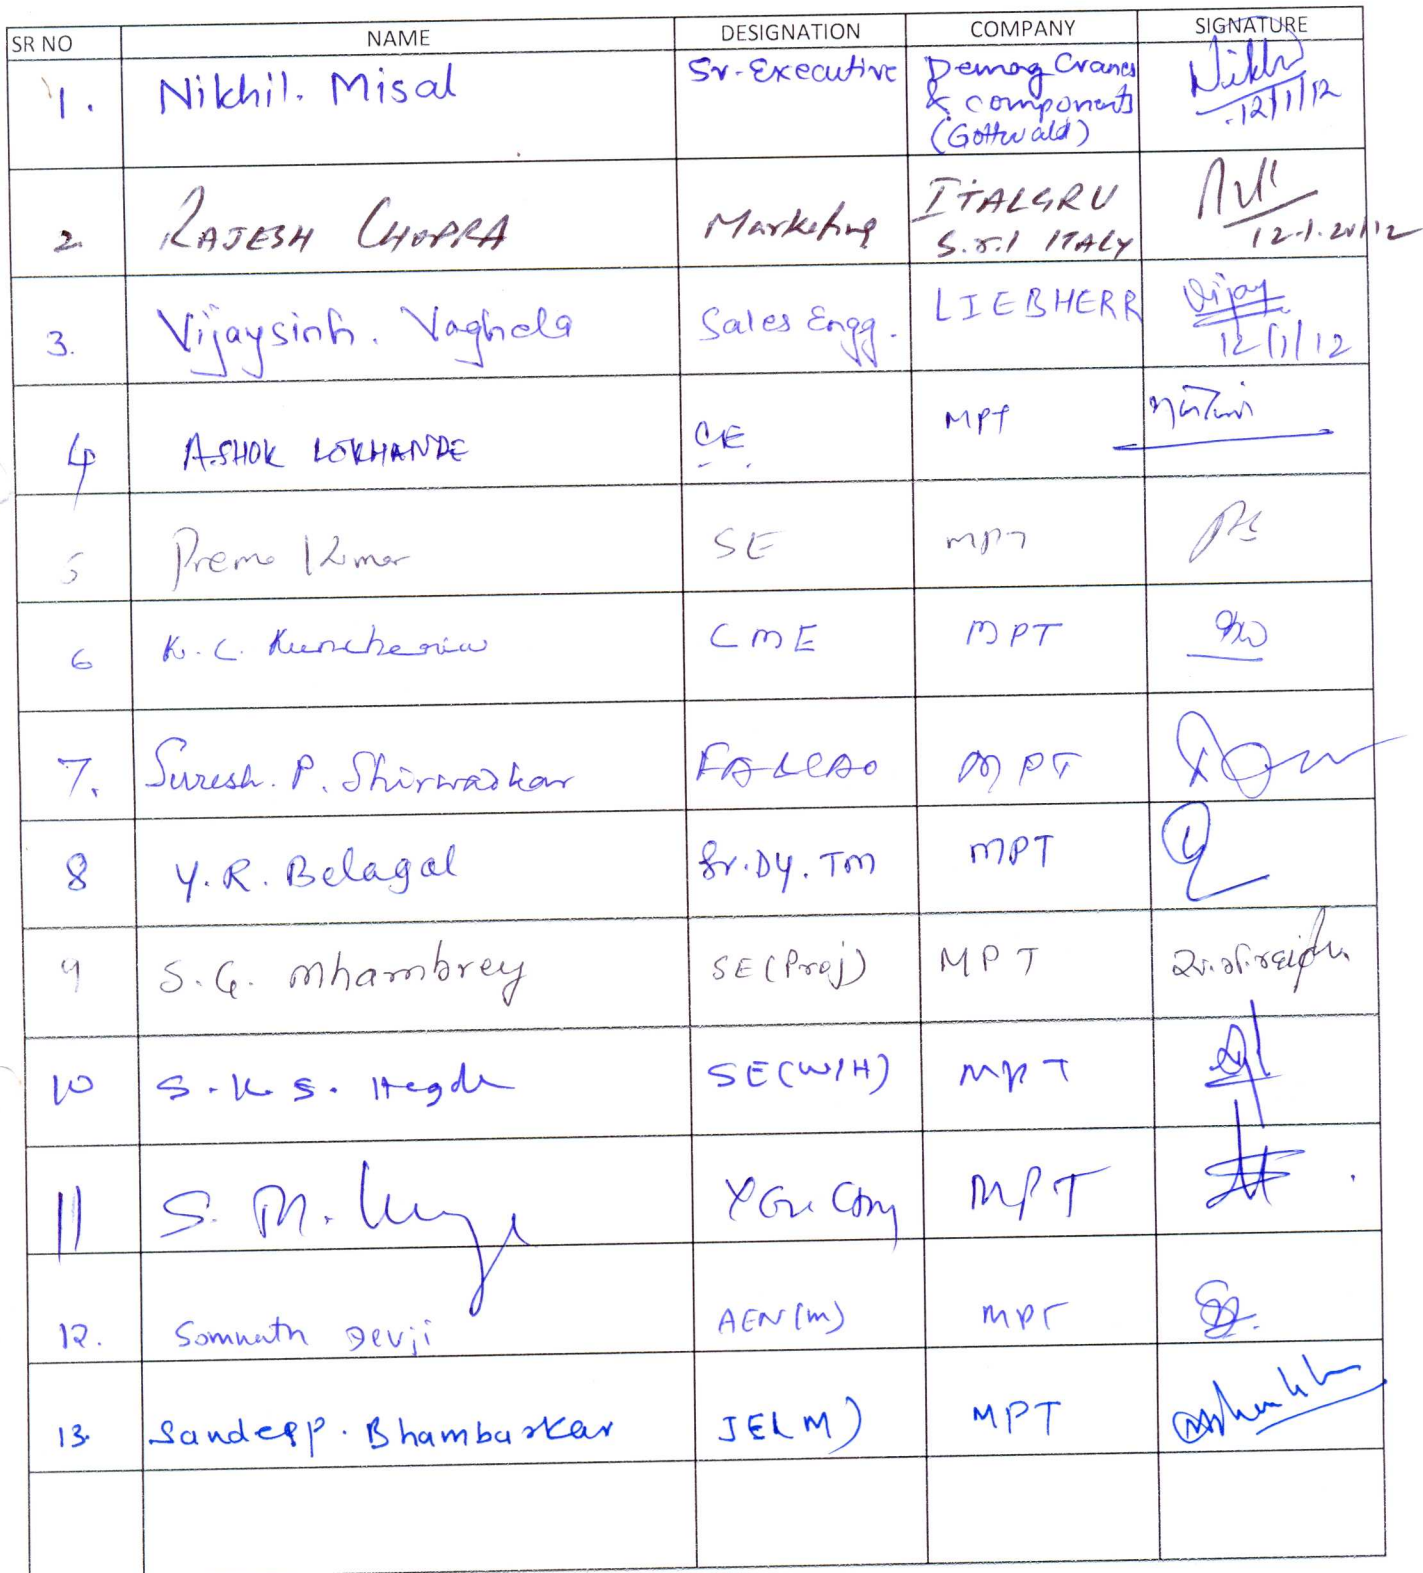 SR NO NAME DESIGNATION COMPANY SIGNATURE
1. Nikhil. Misal Sr-Executive Demag Cranes
& components
(Gottwald)
Nikhil
12/1/12
2. RAJESH CHOPRA Marketing ITALGRU
S.r.l ITALY
12.1.2012
3. Vijaysinh. Vaghela Sales Engg. LIEBHERR Vijay
12/1/12
4 ASHOK LOKHANDE CE MPT
5 Prem Kumar SE MPT
6 K. C. Kuncheria CME MPT
7. Suresh. P. Shirwadkar FA&CAO MPT
8 Y. R. Belagal Sr. Dy. TM MPT
9 S. G. Mhambrey SE (Proj) MPT
10 S. K. S. Hegde SE (W/H) MPT
11 S. M. MPT
12. Somnath Devji AEN (M) MPT
13. Sandeep. Bhambarkar JE(M) MPT